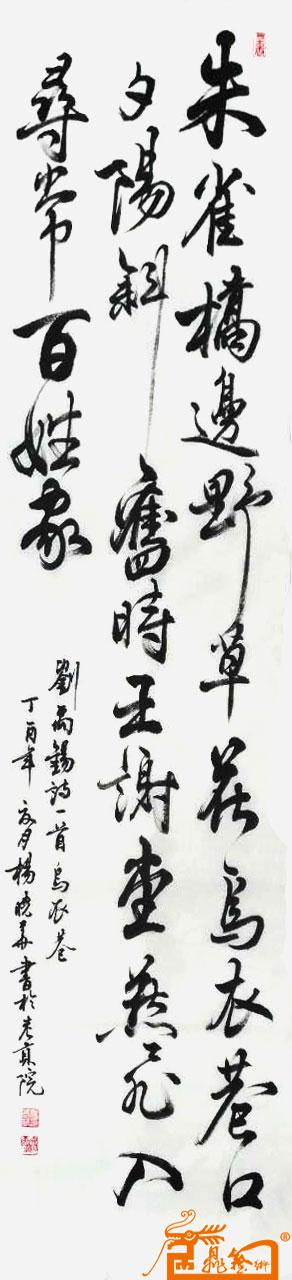 朱雀橋邊野草花烏衣巷口
夕陽斜舊時王謝堂燕飛入
尋常百姓家
劉禹錫詩一首烏衣巷
丁酉年夏月楊曉華書於院